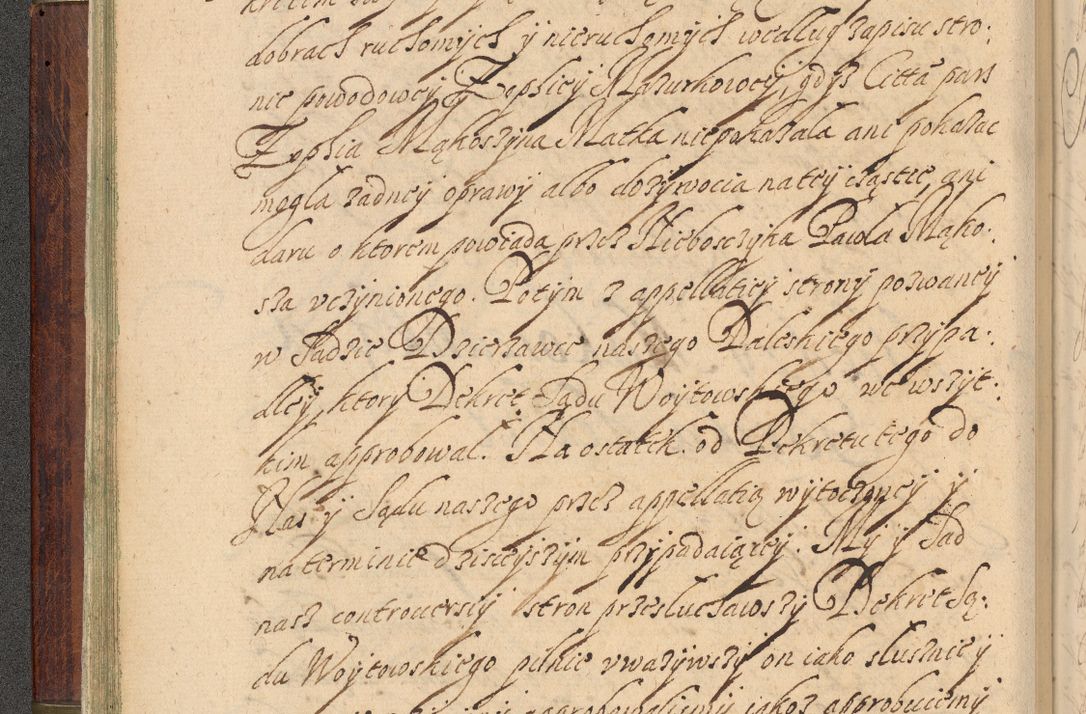 dobrach ruchomych ÿ nieruchomych według zapisu stro:
nie powodowey Zophiey Mazurkowey, gdyż Citta pars
Zophia Mąkoszyna Matka niepokazała ani pokazac
mogła żadney oprawy albo dożywocia na tey cząstce, ani
daru o ktorem powiada przez Nieboszczyka Pawła Mąko:
sza vczynionego. Potym z appellatiey strony pozwaney
w Sądzie Dzierżawce naszego Daleskiego przypa:
dłey, ktory Dekret Sądu Woytowskiego we wszyt:
kim approbował. Na ostatek od Dekretu tego do
Nas ÿ Sądu naszego przez appellatią wytoczoney ÿ
na terminie dzisieyszym przypadaiącey. My ÿ Sąd
nasz controuersiy stron przesłuchawszy Dekret Są:
du Woytowskiego pilnie vważywszy on iako słusznie ÿ
approbowaliśmy iakoż approbuiemy